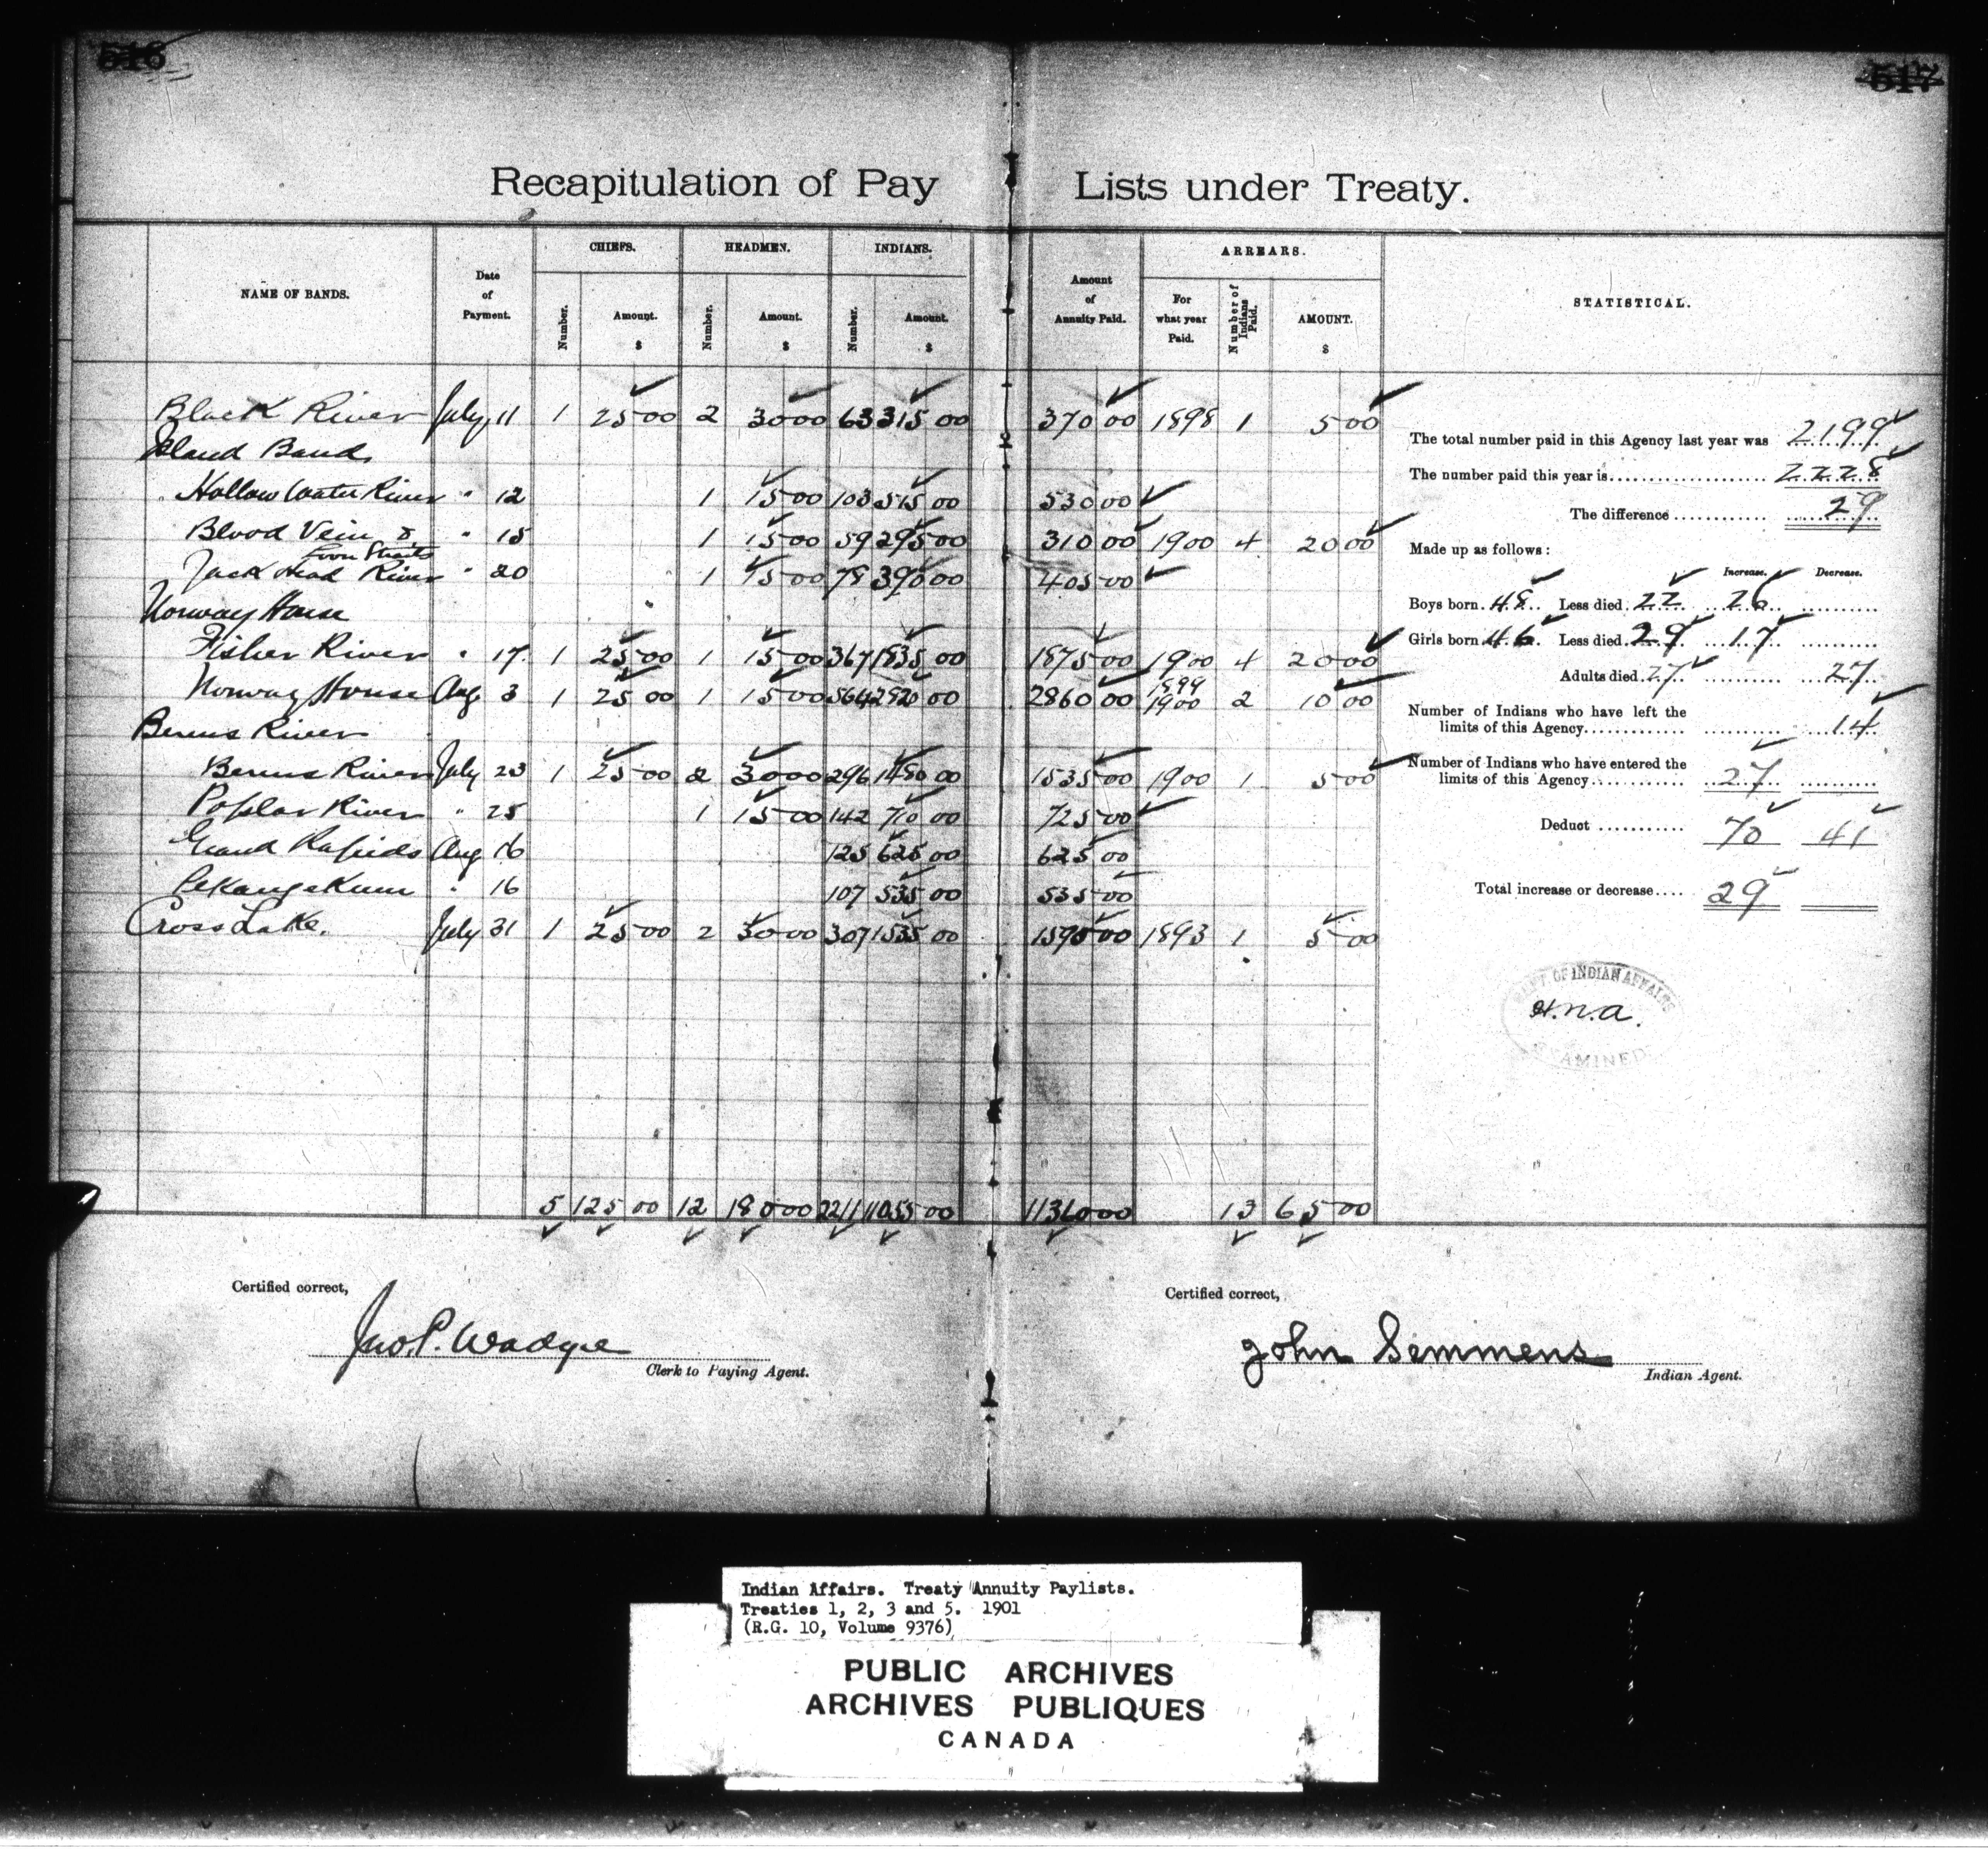 516
517
Recapitulation of Pay Lists under Treaty.
NAME OF BANDS. Date of Payment. CHIEFS. HEADMEN. INDIANS. Amount of Annuity Paid. ARREARS. STATISTICAL.
Number. Amount. $ Number. Amount. $ Number. Amount. $ For what year Paid. Number of Indians Paid. AMOUNT. $
Black River July 11 1 25 00 2 30 00 63 315 00 370 00 1898 1 5 00
Island Band
Hollow Water River " 12 1 15 00 103 515 00 530 00
Blood Vein & " 15 1 15 00 59 295 00 310 00 1900 4 20 00
Loon Straits
Jack Head River " 20 1 15 00 78 390 00 405 00
Norway House
Fisher River " 17 1 25 00 1 15 00 367 1835 00 1875 00 1900 4 20 00
Norway House Aug 3 1 25 00 1 15 00 564 2820 00 2860 00 1899 1900 2 10 00
Berens River
Berens River July 23 1 25 00 2 30 00 296 1480 00 1535 00 1900 1 5 00
Poplar River " 25 1 15 00 142 710 00 725 00
Grand Rapids Aug 16 125 625 00 625 00
Pekangekum " 16 107 535 00 535 00
Cross Lake. July 31 1 25 00 2 30 00 307 1535 00 1590 00 1893 1 5 00
5 125 00 12 180 00 2211 11055 00 11360 00 13 65 00
The total number paid in this Agency last year was 2199
The number paid this year is 2228
The difference 29
Made up as follows:
Increase. Decrease.
Boys born 48 Less died 22 26
Girls born 46 Less died 29 17
Adults died 27 27
Number of Indians who have left the
limits of this Agency 14
Number of Indians who have entered the
limits of this Agency 27
Deduct 70 41
Total increase or decrease 29
DEPT. OF INDIAN AFFAIRS
H.N.A.
EXAMINED
Certified correct,
Jno. P. Wadge
Clerk to Paying Agent.
Certified correct,
John Semmens
Indian Agent.
Indian Affairs. Treaty Annuity Paylists.
Treaties 1, 2, 3 and 5. 1901
(R.G. 10, Volume 9376)
PUBLIC ARCHIVES
ARCHIVES PUBLIQUES
CANADA